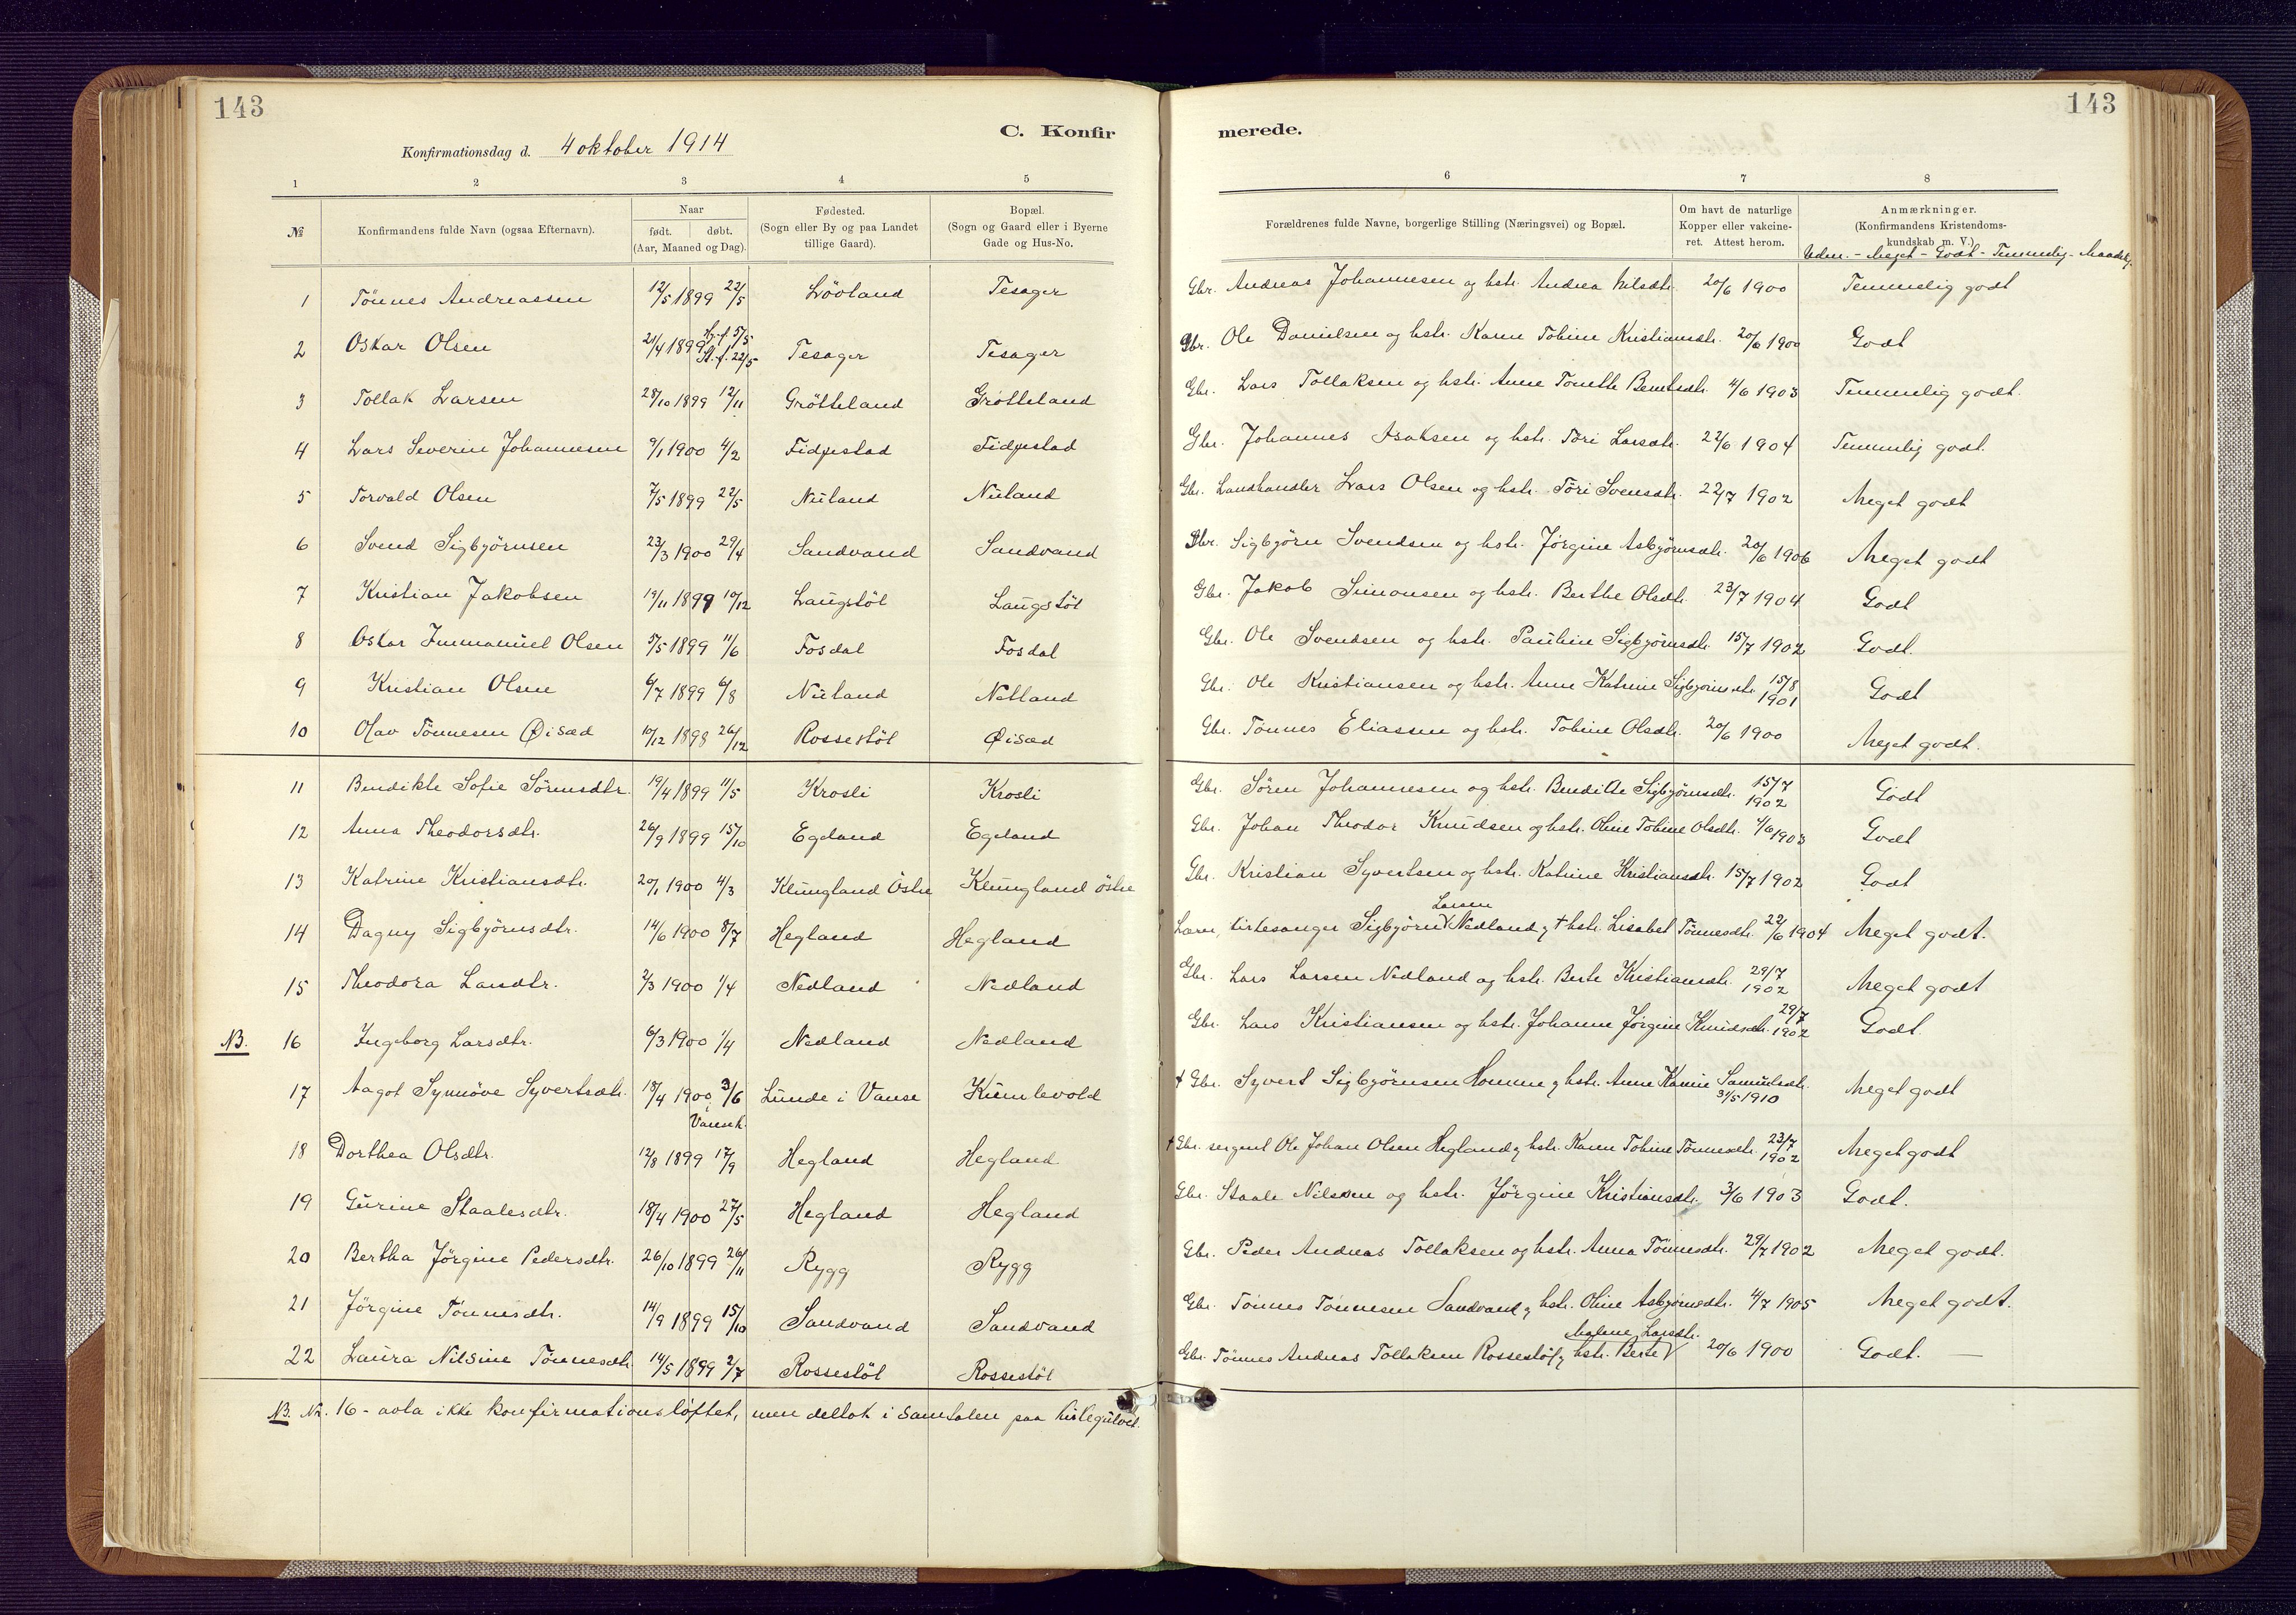 143
143
C. Konfir
merede.
Konfirmationsdag d. 4 oktober 1914
1 2 3 4 5 6 7 8
№
Konfirmandens fulde Navn (ogsaa Efternavn).
Naar
født. døbt.
(Aar, Maaned og Dag).
Fødested.
(Sogn eller By og paa Landet
tillige Gaard).
Bopæl.
(Sogn og Gaard eller i Byerne
Gade og Hus-No.
Forældrenes fulde Navne, borgerlige Stilling (Næringsvei) og Bopæl.
Om havt de naturlige
Kopper eller vakcine-
ret. Attest herom.
Anmærkninger.
(Konfirmandens Kristendoms-
kundskab m. V.)
Udm. - Meget - Godt - Temmelig - Maadelig.
1 Tönnes Andreassen 12/5 1899 22/5 Lövland Tesager Gbr. Andreas Johannesen og hstr. Andrea Nilsdtr. 20/6 1900 Temmelig godt
2 Oskar Olsen 21/4 1899 H.d. 5/5 St.f. 22/5 Tesager Tesager Gbr. Ole Danielsen og hstr. Karen Tobine Kristiansdtr. 20/6 1900 Godt
3 Tollak Larsen 28/10 1899 12/11 Grötteland Grötteland Gbr. Lars Tollaksen og hstr. Anne Tonette Berntsdtr. 4/6 1903 Temmelig godt.
4 Lars Severin Johannesen 9/1 1900 4/2 Fidjestad Fidjestad Gbr. Johannes Isaksen og hstr. Tori Larsdtr. 22/6 1904 Temmelig godt.
5 Torvald Olsen 7/5 1899 22/5 Niland Niland Gbr. Landhandler Lars Olsen og hstr. Tori Svensdtr. 22/7 1902 Meget godt
6 Svend Sigbjörnsen 23/3 1900 29/4 Sandvand Sandvand Gbr. Sigbjörn Svendsen og hstr. Jörgine Asbjörnsdtr. 20/6 1906 Meget godt
7 Kristian Jakobsen 19/11 1899 10/12 Laugstöl Laugstöl Gbr. Jakob Simonsen og hstr. Berthe Olsdtr. 23/7 1904 Godt
8 Oskar Immanuel Olsen 5/5 1899 11/6 Fosdal Fosdal Gbr. Ole Svendsen og hstr. Pauline Sigbjörnsdtr. 15/7 1902 Godt.
9 Kristian Olsen 6/7 1899 6/8 Niland Netland Gbr. Ole Kristiansen og hstr. Anne Katrine Sigbjörnsdtr. 15/8 1901 Godt
10 Olav Tönnesen Øisæd 10/12 1898 26/12 Rossestöl Øisæd Gbr. Tönnes Eliassen og hstr. Tobine Olsdtr. 20/6 1900 Meget godt.
11 Bendikte Sofie Sörensdtr. 19/4 1899 11/5 Krosli Krosli Gbr. Sören Johannesen og hstr. Bendikte Sigbjörnsdtr. 15/7 1902 Godt
12 Anna Theodorsdtr. 26/9 1899 15/10 Egeland Egeland Gbr. Johan Theodor Knudsen og hstr. Oline Tobine Olsdtr. 4/6 1903 Godt
13 Katrine Kristiansdtr. 20/1 1900 4/3 Klungland Östre Klungland östre Gbr. Kristian Syvertsen og hstr. Katrine Kristiansdtr. 15/7 1902 Godt
14 Dagny Sigbjörnsdtr. 14/6 1900 8/7 Hegland Hegland Lærer, kirkesanger Sigbjörn Larsen Nedland og † hstr. Lisabet Tönnesdtr. 22/6 1904 Meget godt.
15 Theodora Larsdtr. 2/3 1900 1/4 Nedland Nedland Gbr. Lars Larsen Nedland og hstr. Berte Kristiansdtr. 29/7 1902 Meget godt
NB. 16 Ingeborg Larsdtr. 6/3 1900 1/4 Nedland Nedland Gbr. Lars Kristiansen og hstr. Johanne Jörgine Knudsdtr. 29/7 1902 Godt.
17 Aagot Synnöve Syvertsdtr. 18/4 1900 3/6 i Vansek. Lunde i Vanse Kumlevold † Gbr. Syvert Sigbjörnsen Homme og hstr. Anne Karine Samuelsdtr. 31/5 1910 Meget godt
18 Dorthea Olsdtr. 12/8 1899 17/9 Hegland Hegland † Gbr. sergent Ole Johan Olsen Hegland og hstr. Karen Tobine Tönnesdtr. 23/7 1902 Meget godt
19 Gurine Staalesdtr. 18/4 1900 27/5 Hegland Hegland Gbr. Staale Nilssen og hstr. Jörgine Kristiansdtr. 3/6 1903 Godt.
20 Bertha Jörgine Pedersdtr. 26/10 1899 26/11 Rygg Rygg Gbr. Peder Andreas Tollaksen og hstr. Anna Tönnesdtr. 29/7 1902 Meget godt.
21 Jörgine Tönnesdtr. 14/9 1899 15/10 Sandvand Sandvand Gbr. Tönnes Tönnesen Sandvand og hstr. Oline Asbjörnsdtr. 4/7 1905 Meget godt.
22 Laura Nilsine Tönnesdtr. 14/5 1899 2/7 Rossestöl Rossestöl Gbr. Tönnes Andreas Tollaksen Rossestöl og hstr. Berte Malene Larsdtr. 20/6 1900 Godt. —
NB. Nr. 16 - avla ikke konfirmationsløftet, men deltok i samtalen paa kirkegulvet.